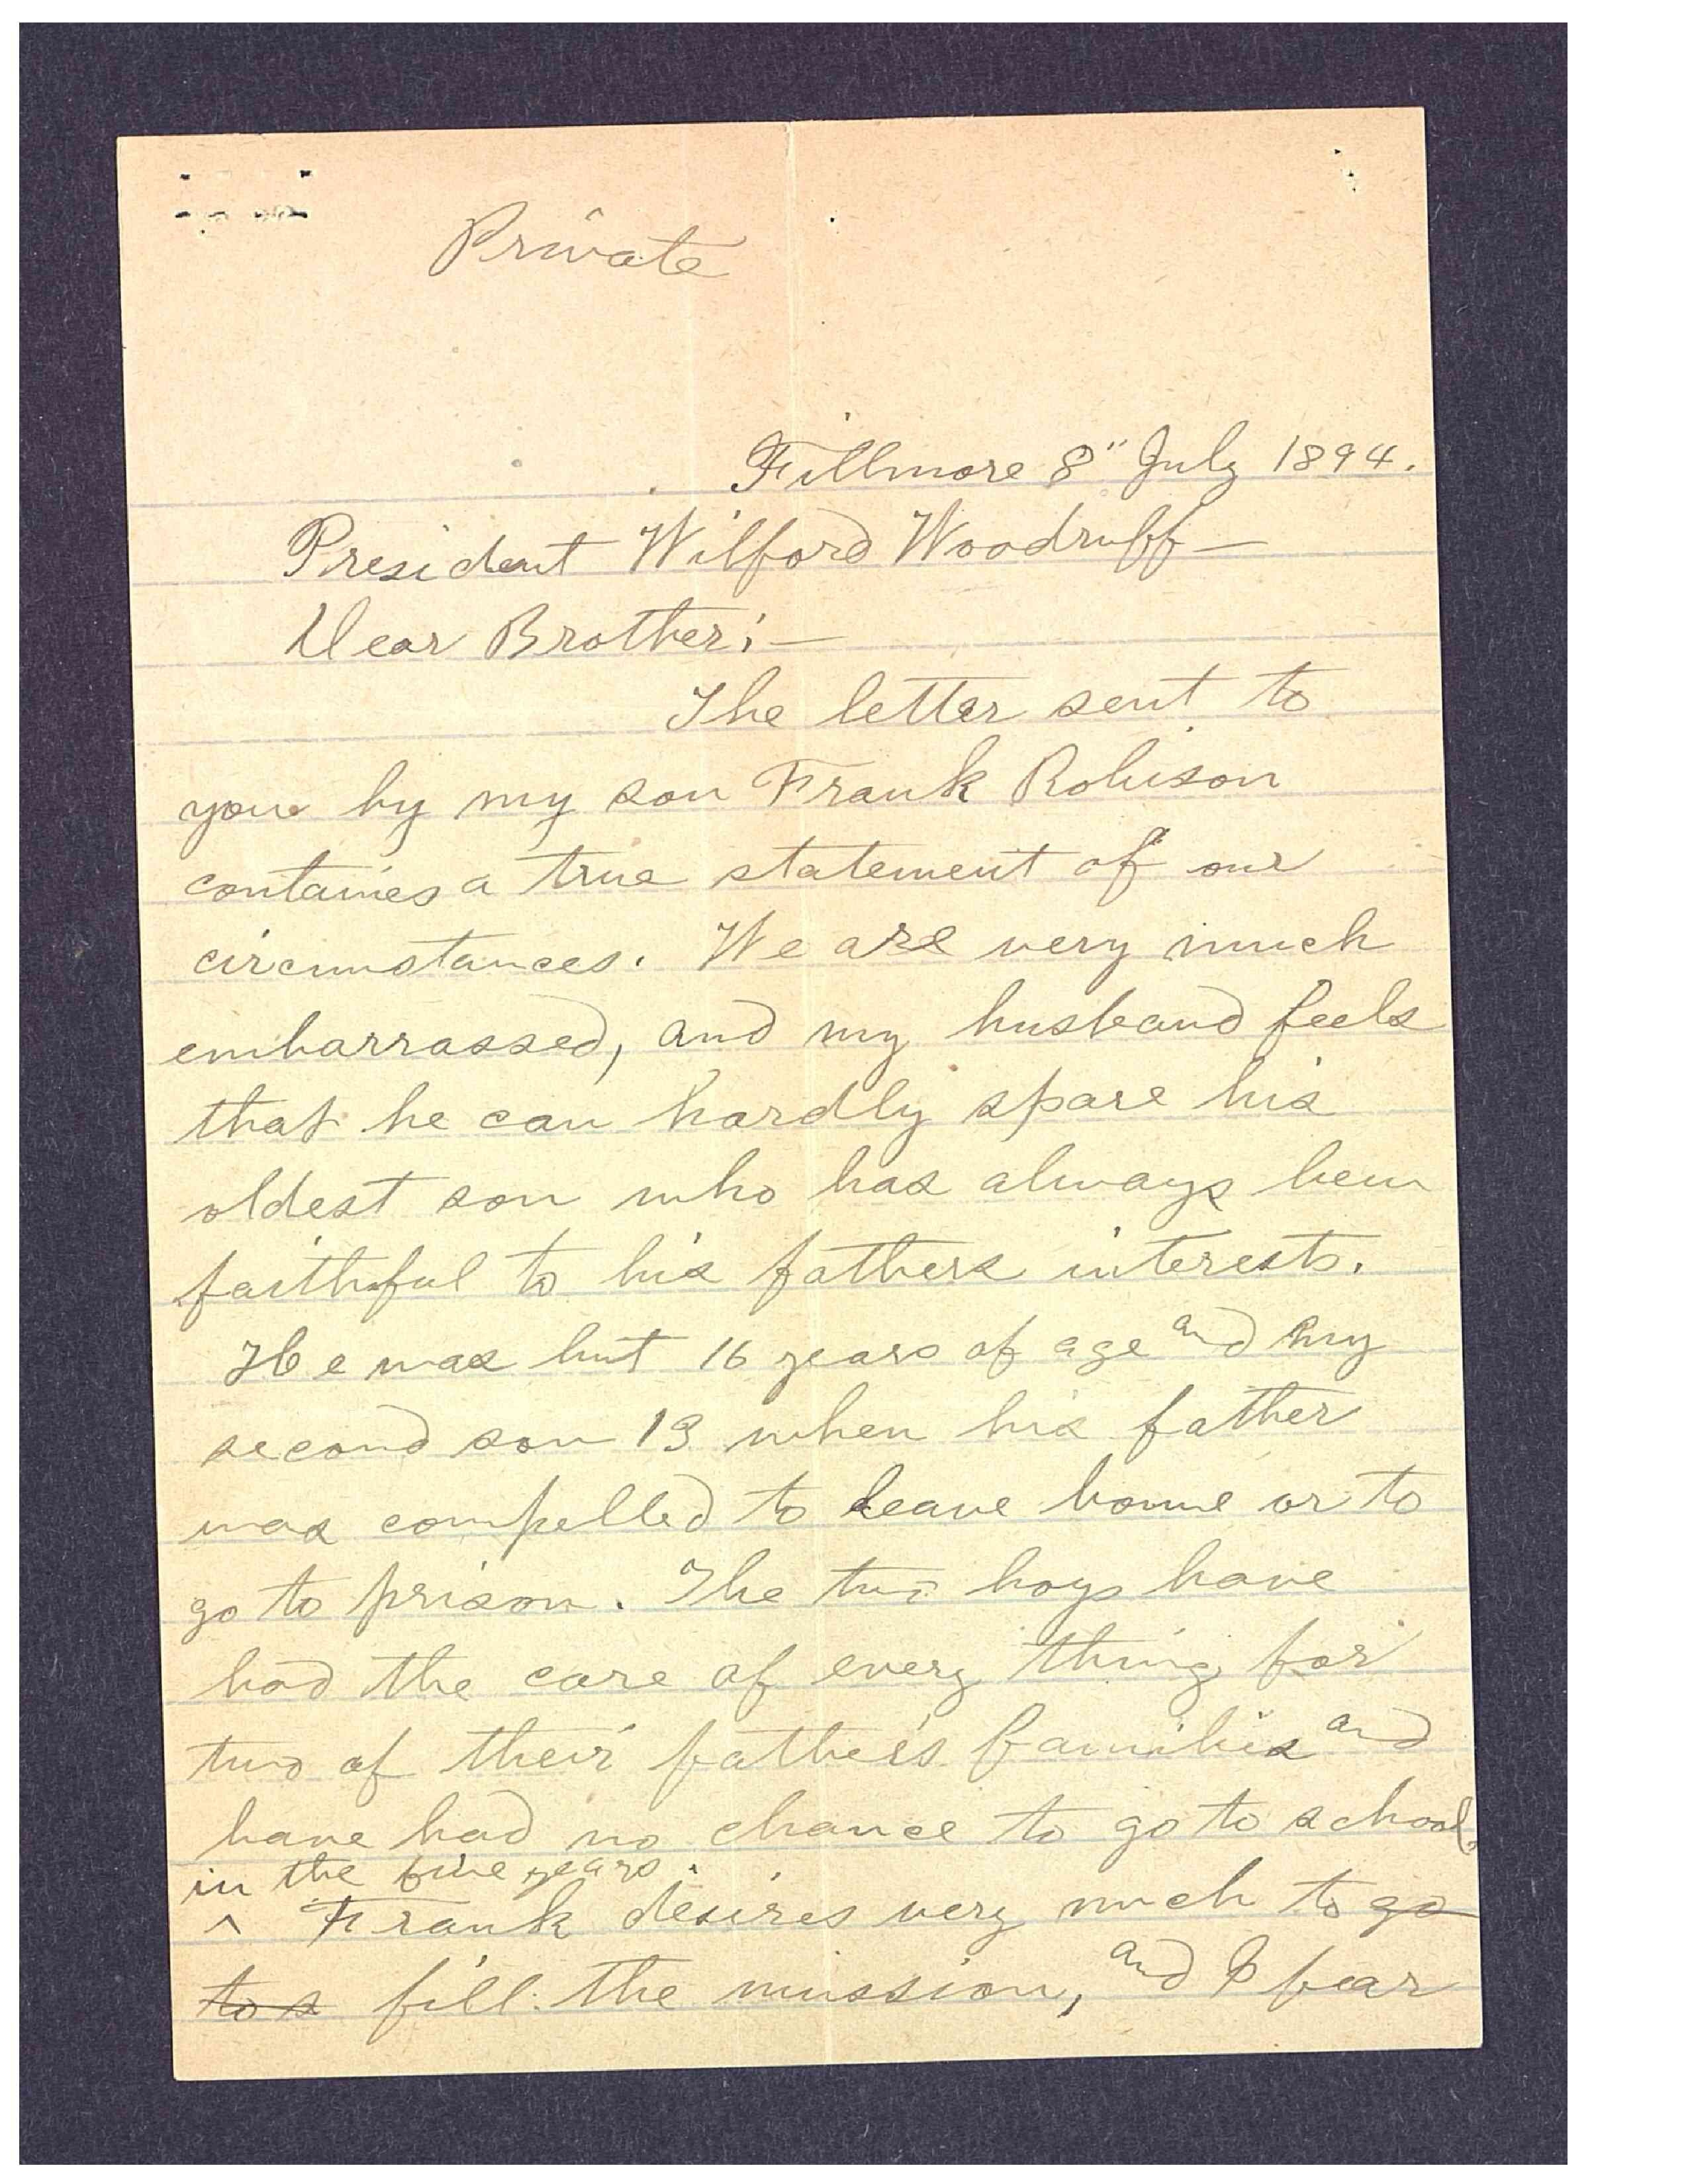 Private
Fillmore 8" July 1894.
President Wilford Woodruff—
Dear Brother;—
The letter sent to
you by my son Frank Robison
containes a true statement of our
circumstances. We are very much
embarrassed, and my husband feels
that he can hardly spare his
oldest son who has always been
faithful to his fathers interests.
He was but 16 years of age and my
second son 13 when his father
was compelled to leave home or to
go to prison. The two boys have
had the care of every thing for
two of their father's families and
have had no chance to go to school
in the five years.
^ Frank desires very much to go
to s fill the mission, and I fear